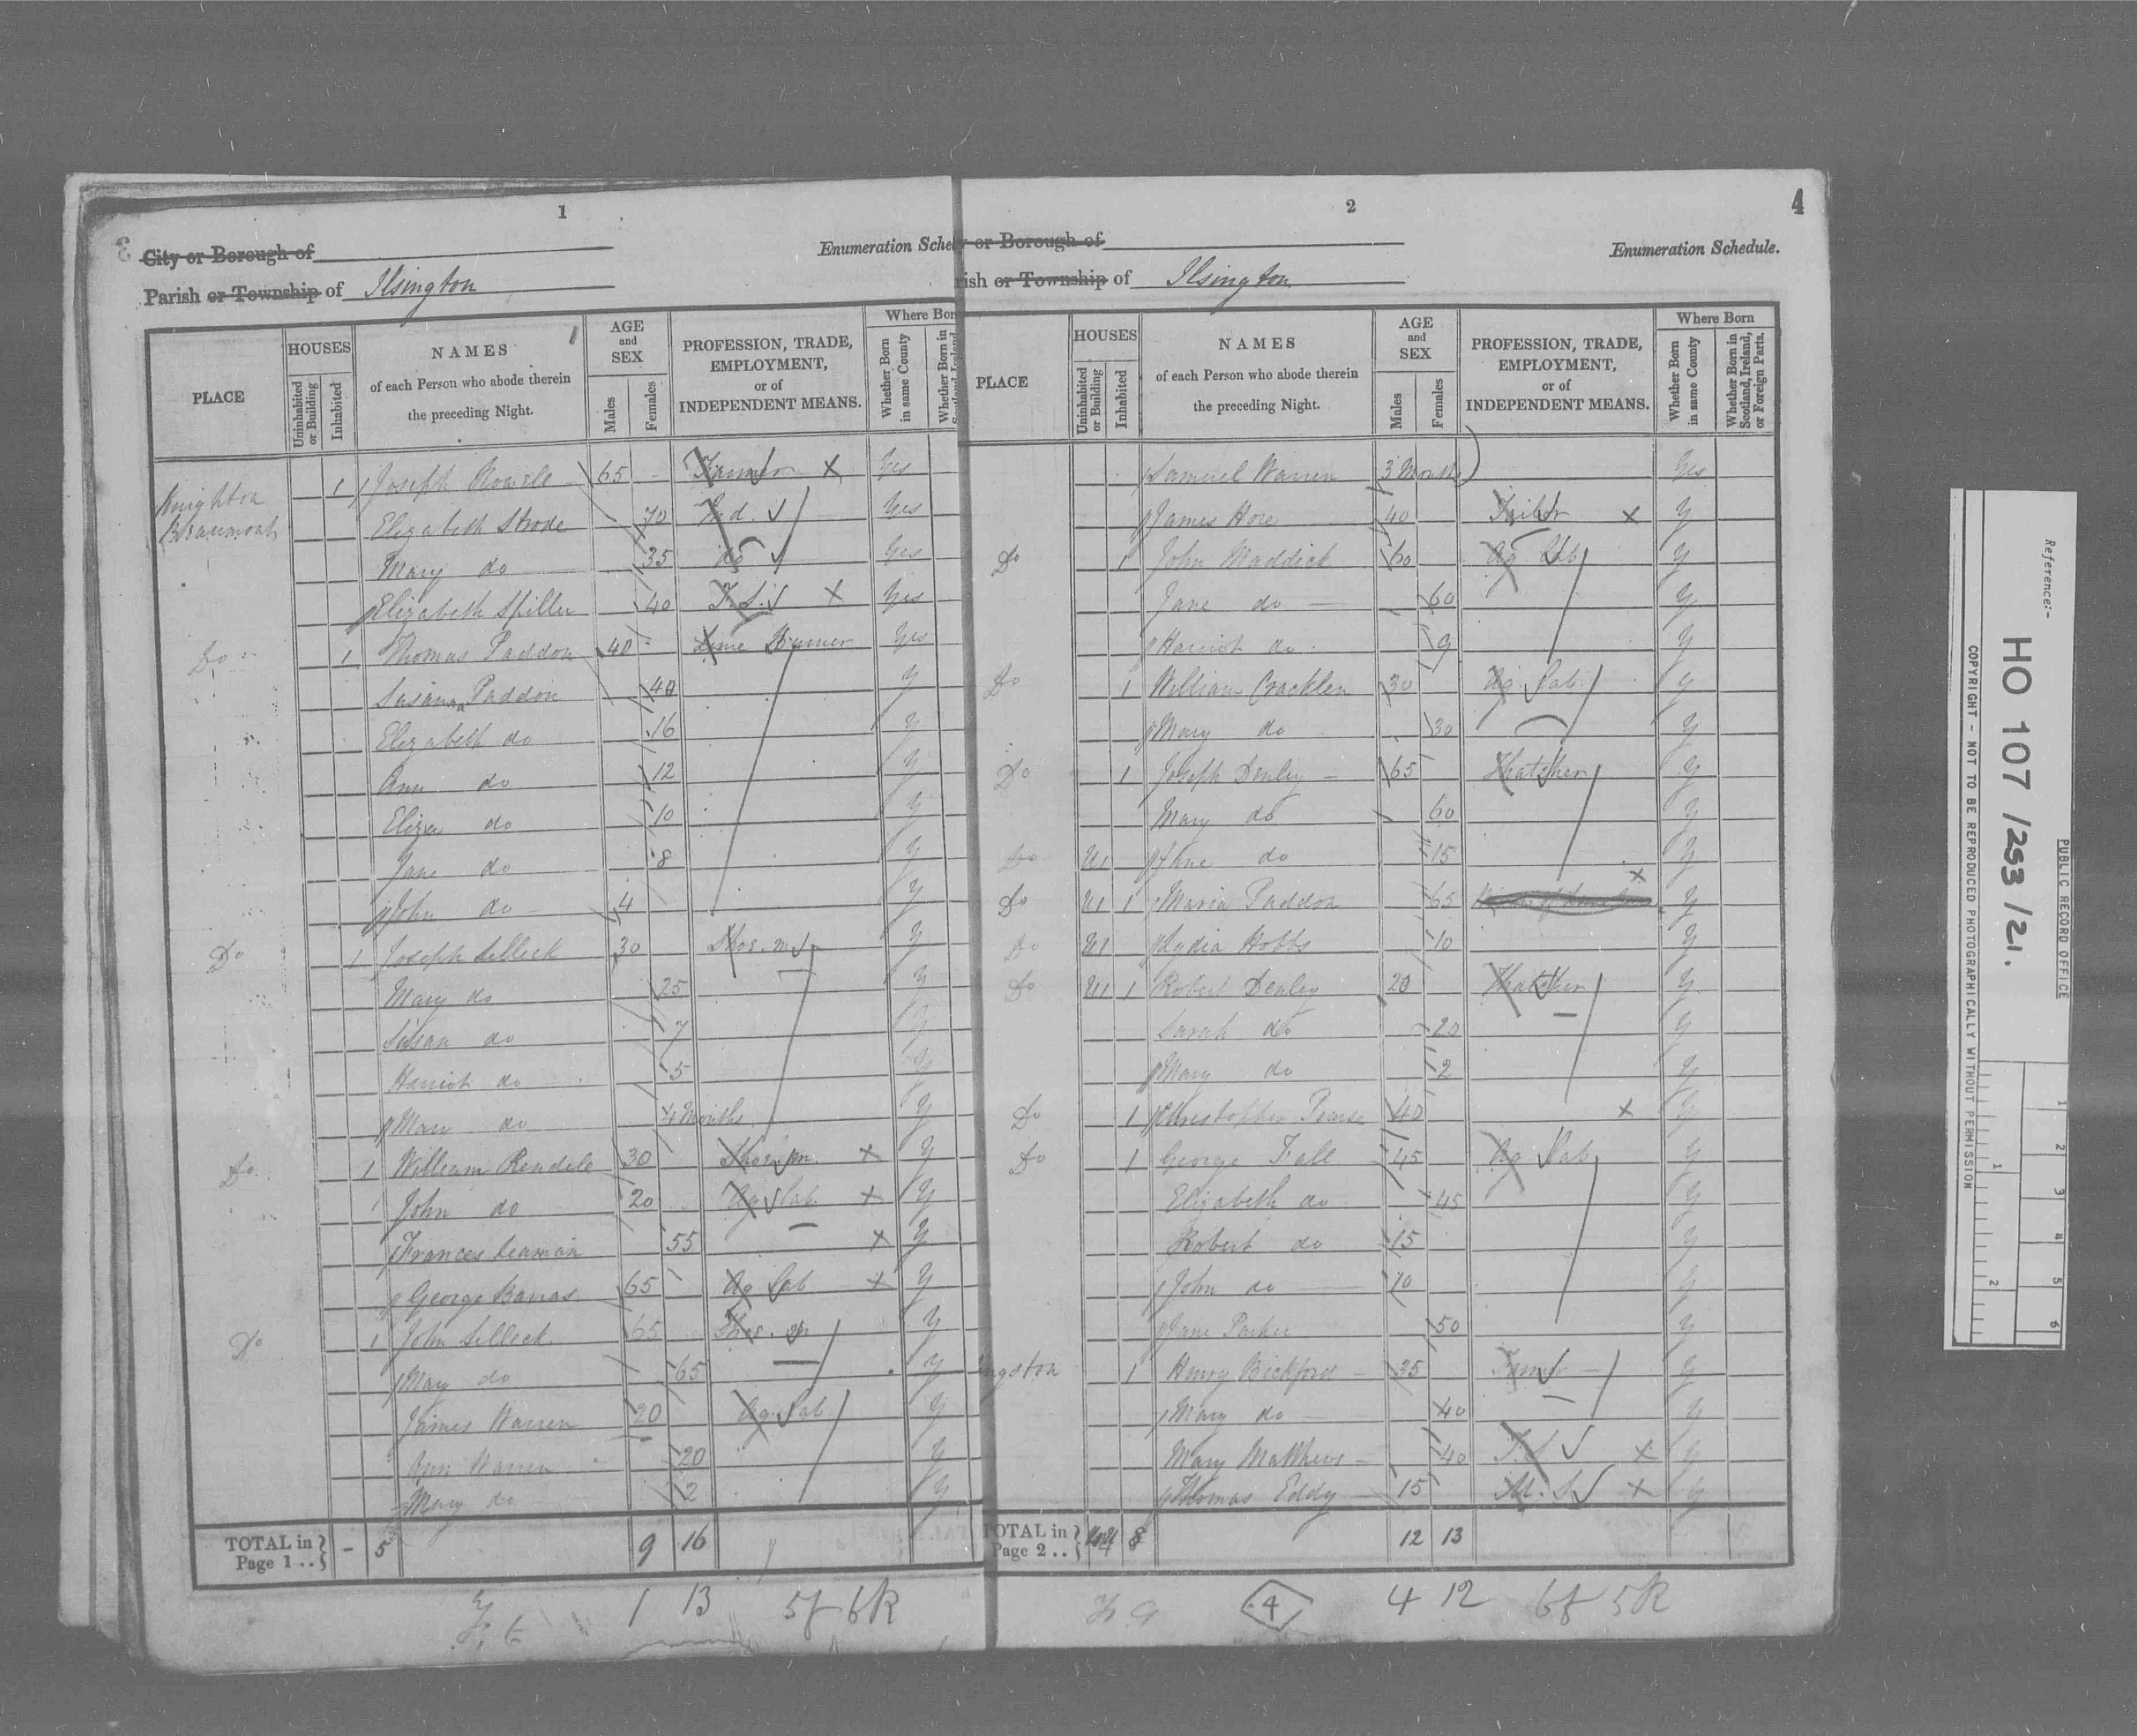 1
City or Borough of
Enumeration Sche
Parish or Township of Ilsington
PLACE
HOUSES
Uninhabited or Building
Inhabited
NAMES
of each Person who abode therein
the preceding Night.
AGE
and
SEX
Males
Females
PROFESSION, TRADE,
EMPLOYMENT,
or of
INDEPENDENT MEANS.
Where Bor
Whether Born in same County
Whether Born in
Knighton 1 Joseph 65 Farmer X Yes
Beaumont Elizabeth Strode 70 Ind. Yes
Mary do 35 do Yes
Elizabeth Spiller 40 F.S. X Yes
Do 1 Thomas Paddon 40 Lime Burner Yes
Susanna Paddon 40 Y
Elizabeth do 16 Y
Ann do 12 Y
Eliza do 10 Y
Jane do 8 Y
John do 4 Y
Do 1 Joseph Selleck 30 Shoe.m Y
Mary do 25 Y
Susan do 7 Y
Harriot do 5 Y
Mary do 4 Months Y
Do 1 William Rendele 30 Shoe.m. X Y
John do 20 Ag. Lab. X Y
Frances Leaman 55 X Y
George 65 Ag. Lab X Y
Do 1 John Selleck 65 Shoe. m Y
Mary do 65 Y
James Warren 20 Ag. Lab Y
Ann Warren 20 Y
Mary do 2 Y
TOTAL in Page 1 .. } - 5 9 16
1 13 5f 6R
2
4
or Borough of
Enumeration Schedule.
rish or Township of Ilsington
PLACE
HOUSES
Uninhabited or Building
Inhabited
NAMES
of each Person who abode therein
the preceding Night.
AGE
and
SEX
Males
Females
PROFESSION, TRADE,
EMPLOYMENT,
or of
INDEPENDENT MEANS.
Where Born
Whether Born in same County
Whether Born in Scotland, Ireland, or Foreign Parts.
Samuel Warren 3 Months Yes
James How 40 Tailor X Y
Do 1 John Maddick 60 Ag Lab Y
Jane do 60 Y
Harriot do 9 Y
Do 1 William Cracklen 30 Ag. Lab. Y
Mary do 30 Y
Do 1 Joseph Denley 65 Thatcher Y
Mary do 60 Y
Do U1 Jane do 15 Y
Do U1 1 Maria Paddon 65 X Y
do U1 Lydia Hobbs 10 Y
Do U1 1 Robert Denley 20 Thatcher Y
Sarah do 20 Y
Mary do 2 Y
Do 1 Christopher Pearse 40 X Y
Do 1 George Fall 45 Ag Lab Y
Elizabeth do 45 Y
Robert do 15 Y
John do 10 Y
Jane Parker 50 Y
ngston 1 Henry Bickford 35 Farmer Y
Mary do 40 Y
Mary Matthews 40 F.S X Y
Thomas Eddy 15 M. S X Y
TOTAL in Page 2 .. } 4 8 12 13
4 4 12 6f 5R
Reference:-
HO 107 /253/21.
PUBLIC RECORD OFFICE
COPYRIGHT - NOT TO BE REPRODUCED PHOTOGRAPHICALLY WITHOUT PERMISSION
1 2 3 4 5 6
1 2